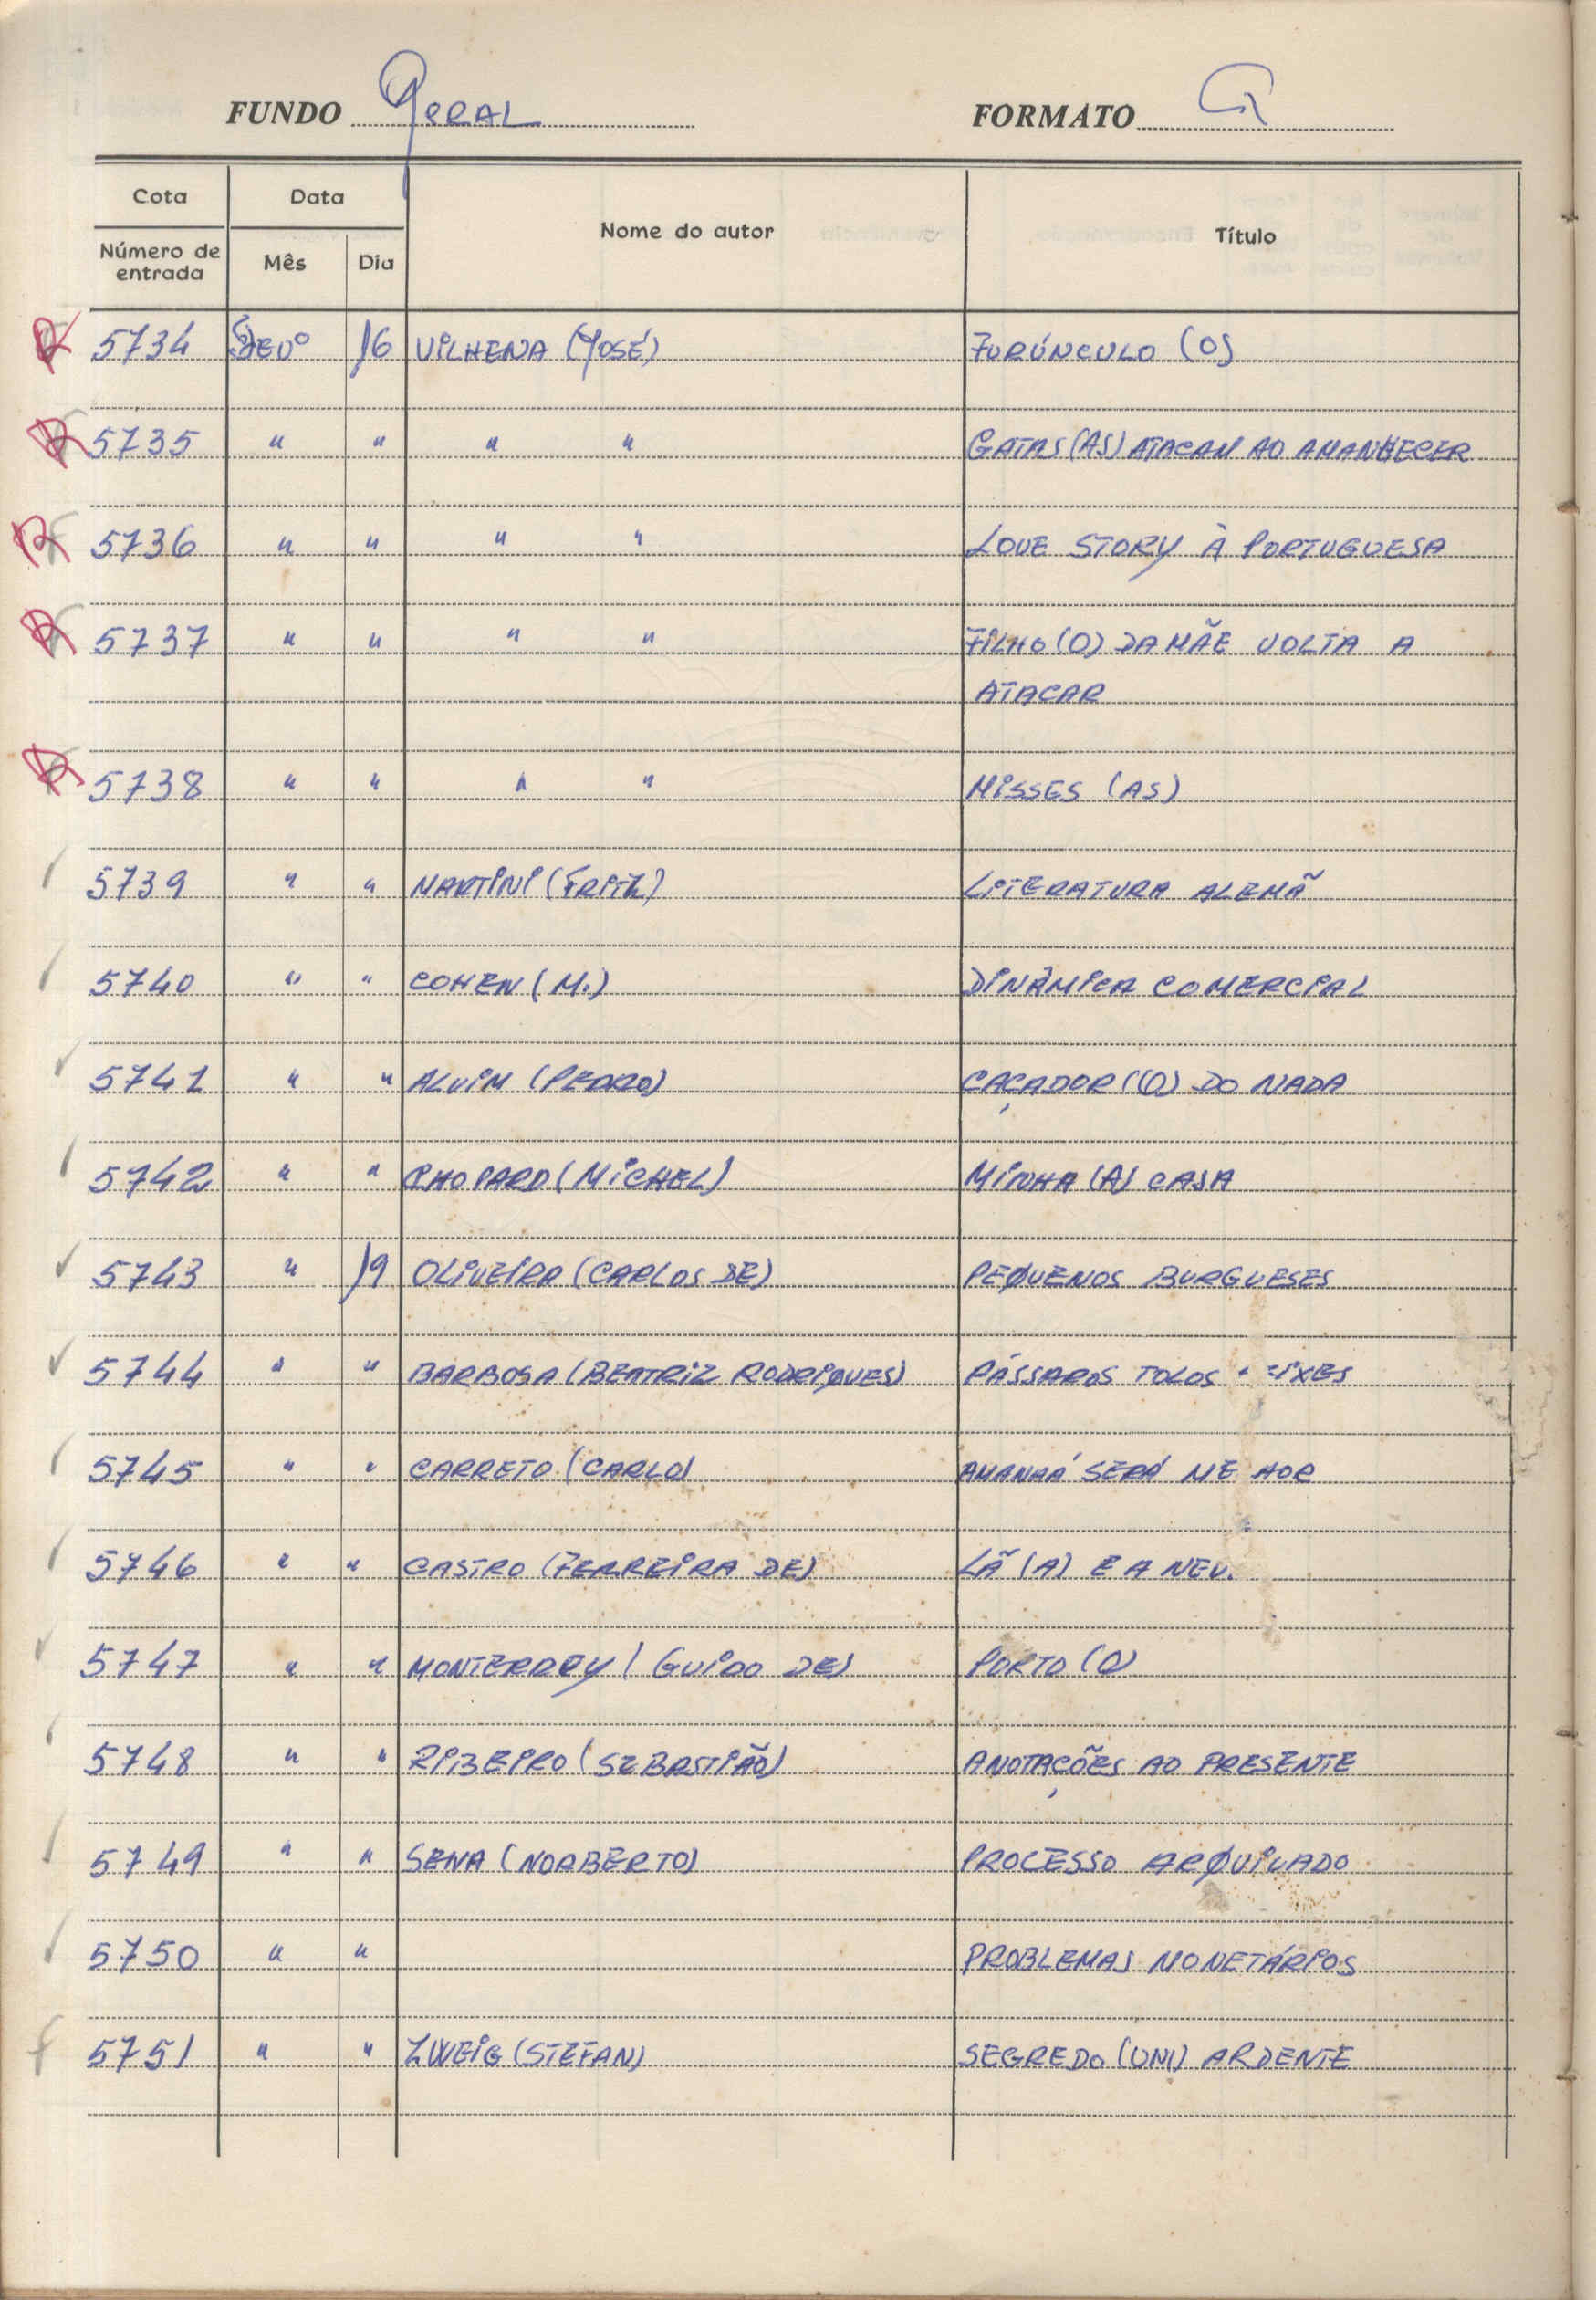 FUNDO GERAL FORMATO G
Cota Data Nome do autor Título
Número de entrada Mês Dia
5734 Fevº 16 VILHENA (JOSÉ) FURÚNCULO (O)
5735 " " " " GATAS (AS) ATACAM AO AMANHECER
5736 " " " " LOVE STORY À PORTUGUESA
5737 " " " " FILHO (O) DA MÃE VOLTA A
ATACAR
5738 " " " " MISSES (AS)
5739 " " MARTINI (FRITZ) LITERATURA ALEMÃ
5740 " " COHEN (M.) DINÂMICA COMERCIAL
5741 " " ALVIM (PEDRO) CAÇADOR ((O) DO NADA
5742 " " CHOPARD (MICHEL) MINHA (A) CASA
5743 " 19 OLIVEIRA (CARLOS DE) PEQUENOS BURGUESES
5744 " " BARBOSA (BEATRIZ RODRIGUES) PÁSSAROS TOLOS
5745 " " CARRETO (CARLO) AMANHÃ SERÁ ME HOR
5746 " " CASTRO (FERREIRA DE) LÃ (A) E A NEV.
5747 " " MONTERREY (GUIDO DE) PORTO (O)
5748 " " RIBEIRO (SEBASTIÃO) ANOTAÇÕES AO PRESENTE
5749 " " SENA (NORBERTO) PROCESSO ARQUIVADO
5750 " " PROBLEMAS MONETÁRIOS
5751 " " ZWEIG (STEFAN) SEGREDO (UM) ARDENTE